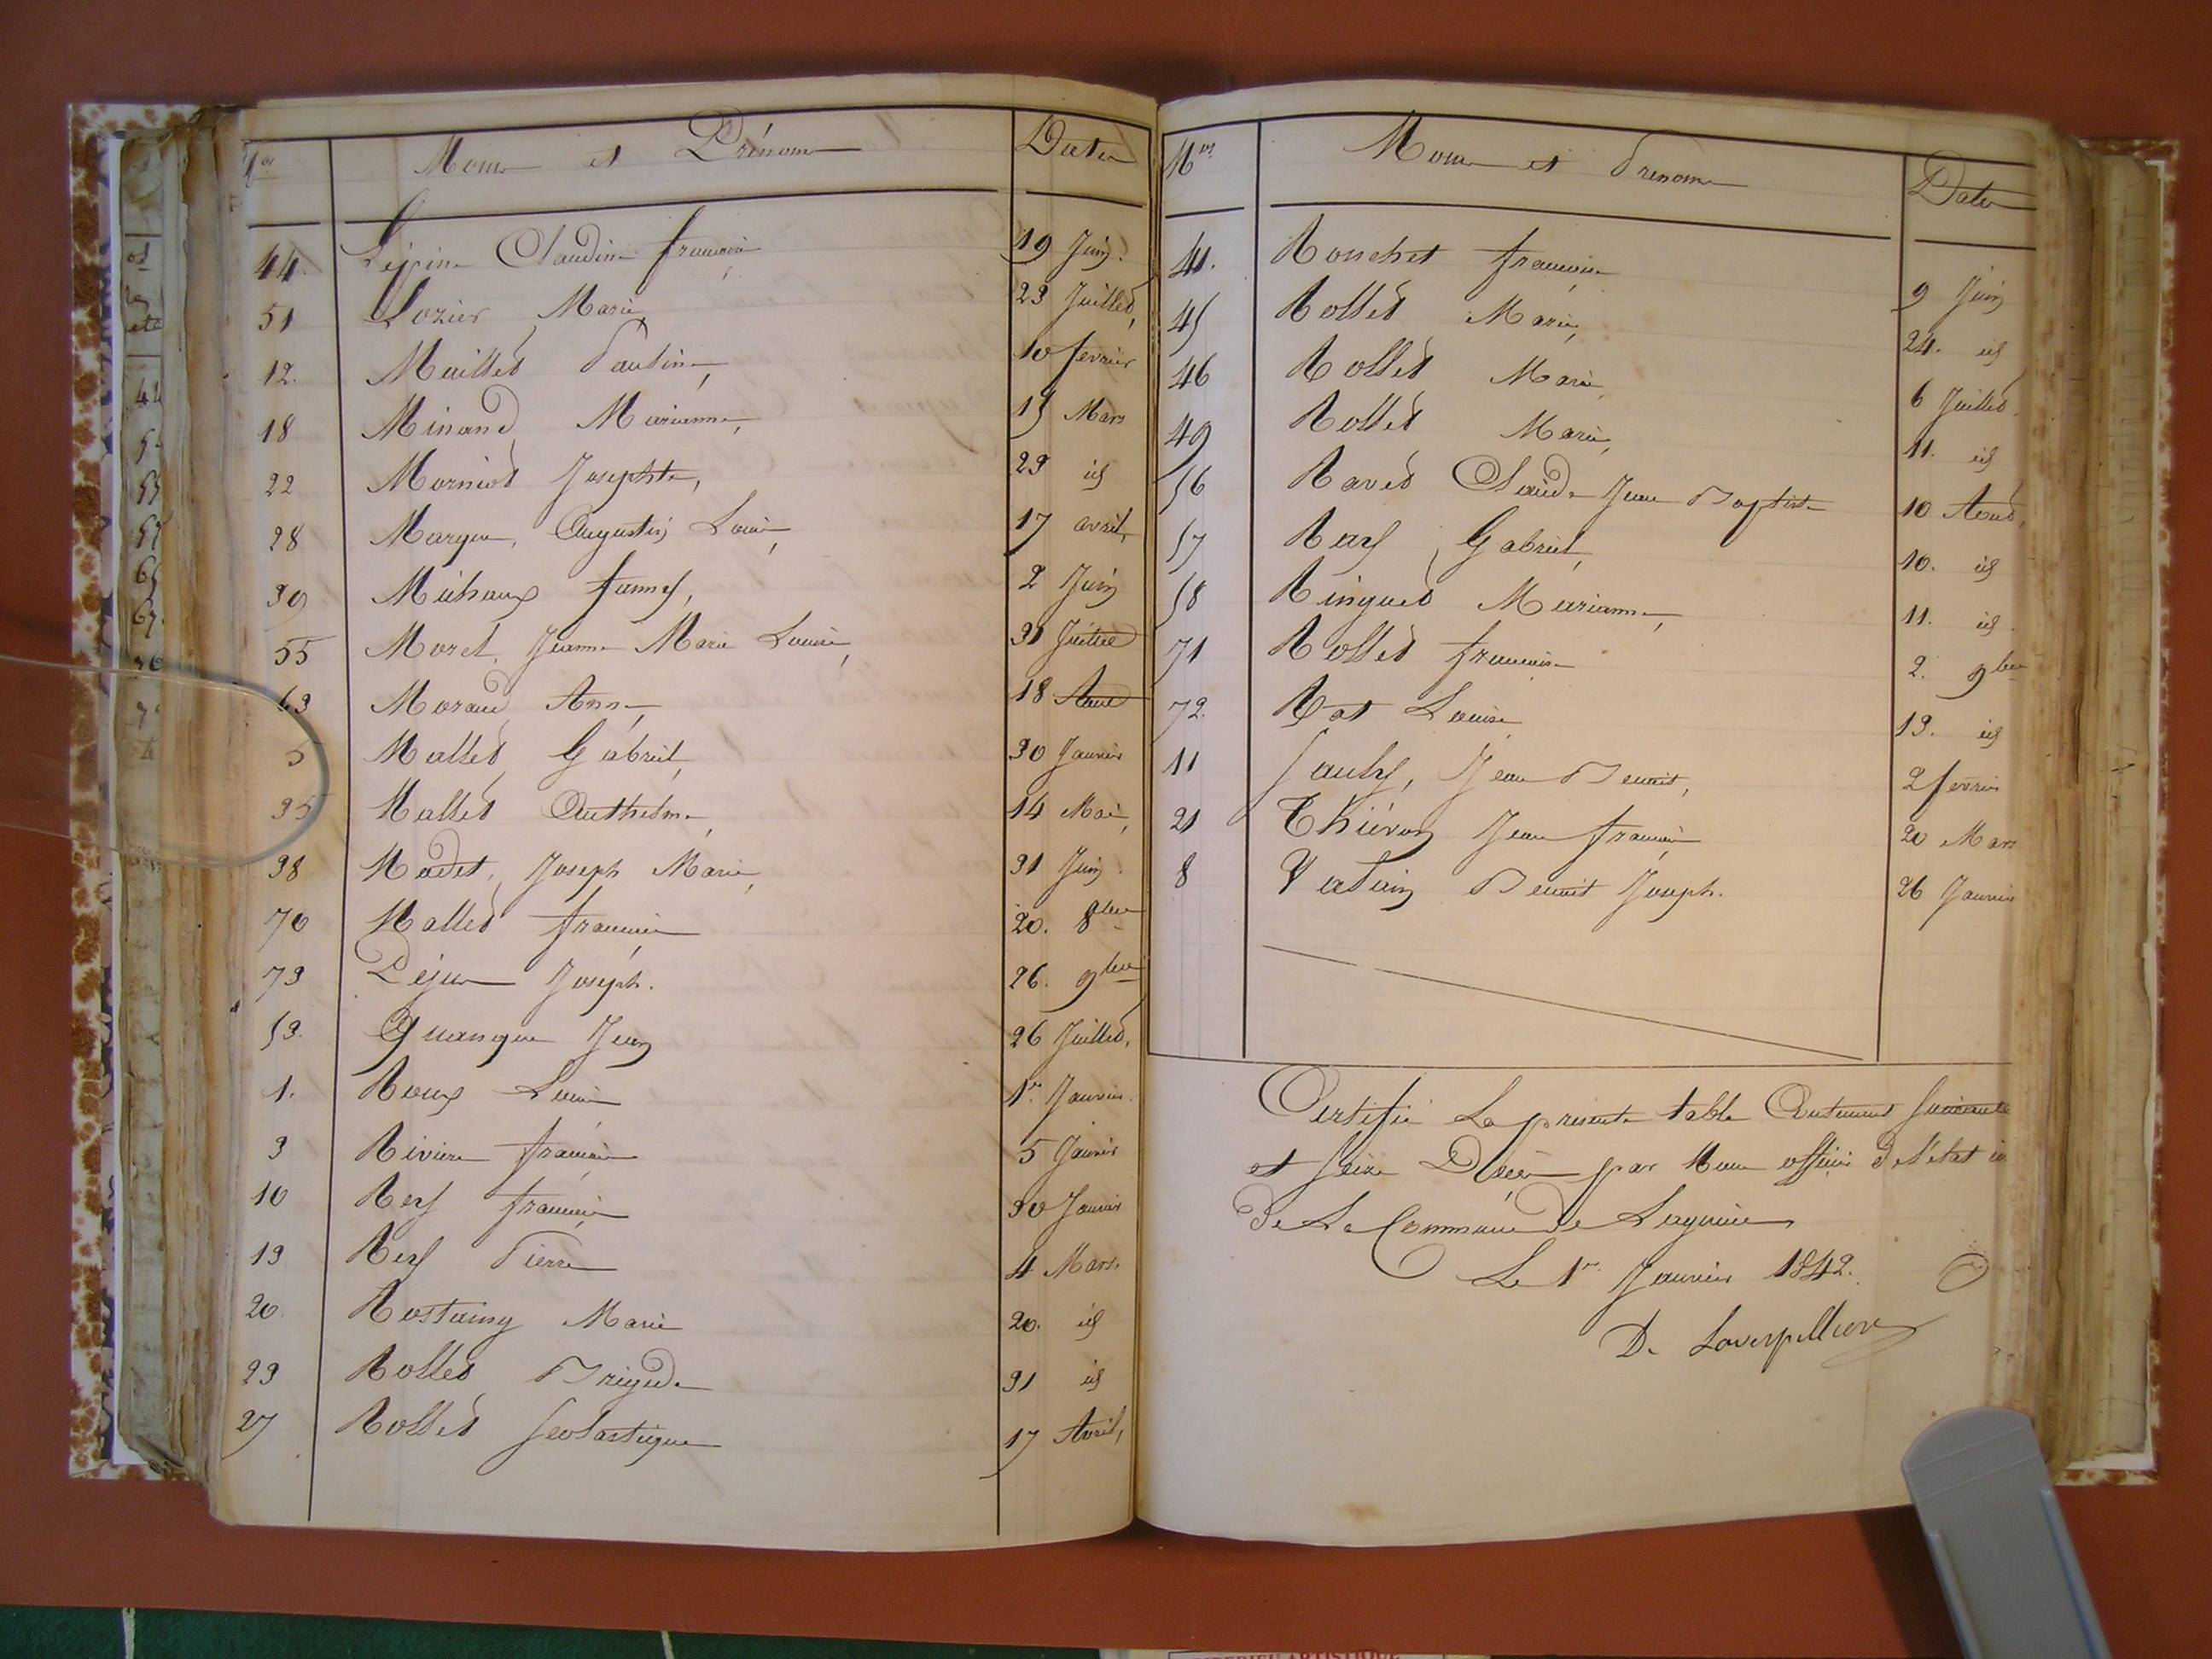 Nos Noms et Prénoms Dates
44. Lépine Claudine françoise 19 Juin.
51 Lozier, Marie, 23 Juillet,
12. Maillet Pauline, 10 fevrier
18 Minand, Marianne, 15 Mars
22 Morniet Josephte, 29 id
28 Margue, Augustin Louis, 17 avril,
39 Michaux fanny, 2 Juin
55 Morel, Jeanne Marie Louise, 31 Juillet
63 Moraud, Anne, 18 Aout
5 Nallet, Gabriel, 30 Janvier
35 Nallet Anthelme, 14 Mai,
38 Nodet, Joseph Marie, 31 Juin
70 Nallet françoise 20. 8bre
73 Péjus Joseph. 26. 9bre
53. Quanque Jean 26 Juillet,
1. Roux Louis 1er Janvier.
3 Riviere françois 5 Janvier
10 Rey françois 30 Janvier
13 Rey Pierre 4 Mars.
20. Rostaing Marie 20. id
23 Rollet Brigide 31 id
27 Rollet Scolastique 17 Avril,
Nos Noms et Prenoms Dates
41. Ronchet françoise 9 Juin
45 Rollet Marie, 24. id
46 Rollet Marie, 6 Juillet.
49 Rollet Marie, 11. id
56 Ravet Claude Jean Baptiste 10 Aout,
57 Rey, Gabriel, 10. id
58 Ringuet Marianne, 11. id.
71 Rollet françoise 2. 9bre
72. Rat Louise 13. id
11 Sauly, Jean Benoit, 2 fevrier
21 Thiévon Jean françois 20 Mars
8 Vatain Benoit Joseph. 26 Janvier
Certifié La presente table Contenant Soixante
et Seize Décès par Nous officier de l'etat
de La Commune de Lagnieu
Le 1er Janvier 1842.
D. Loverpillière